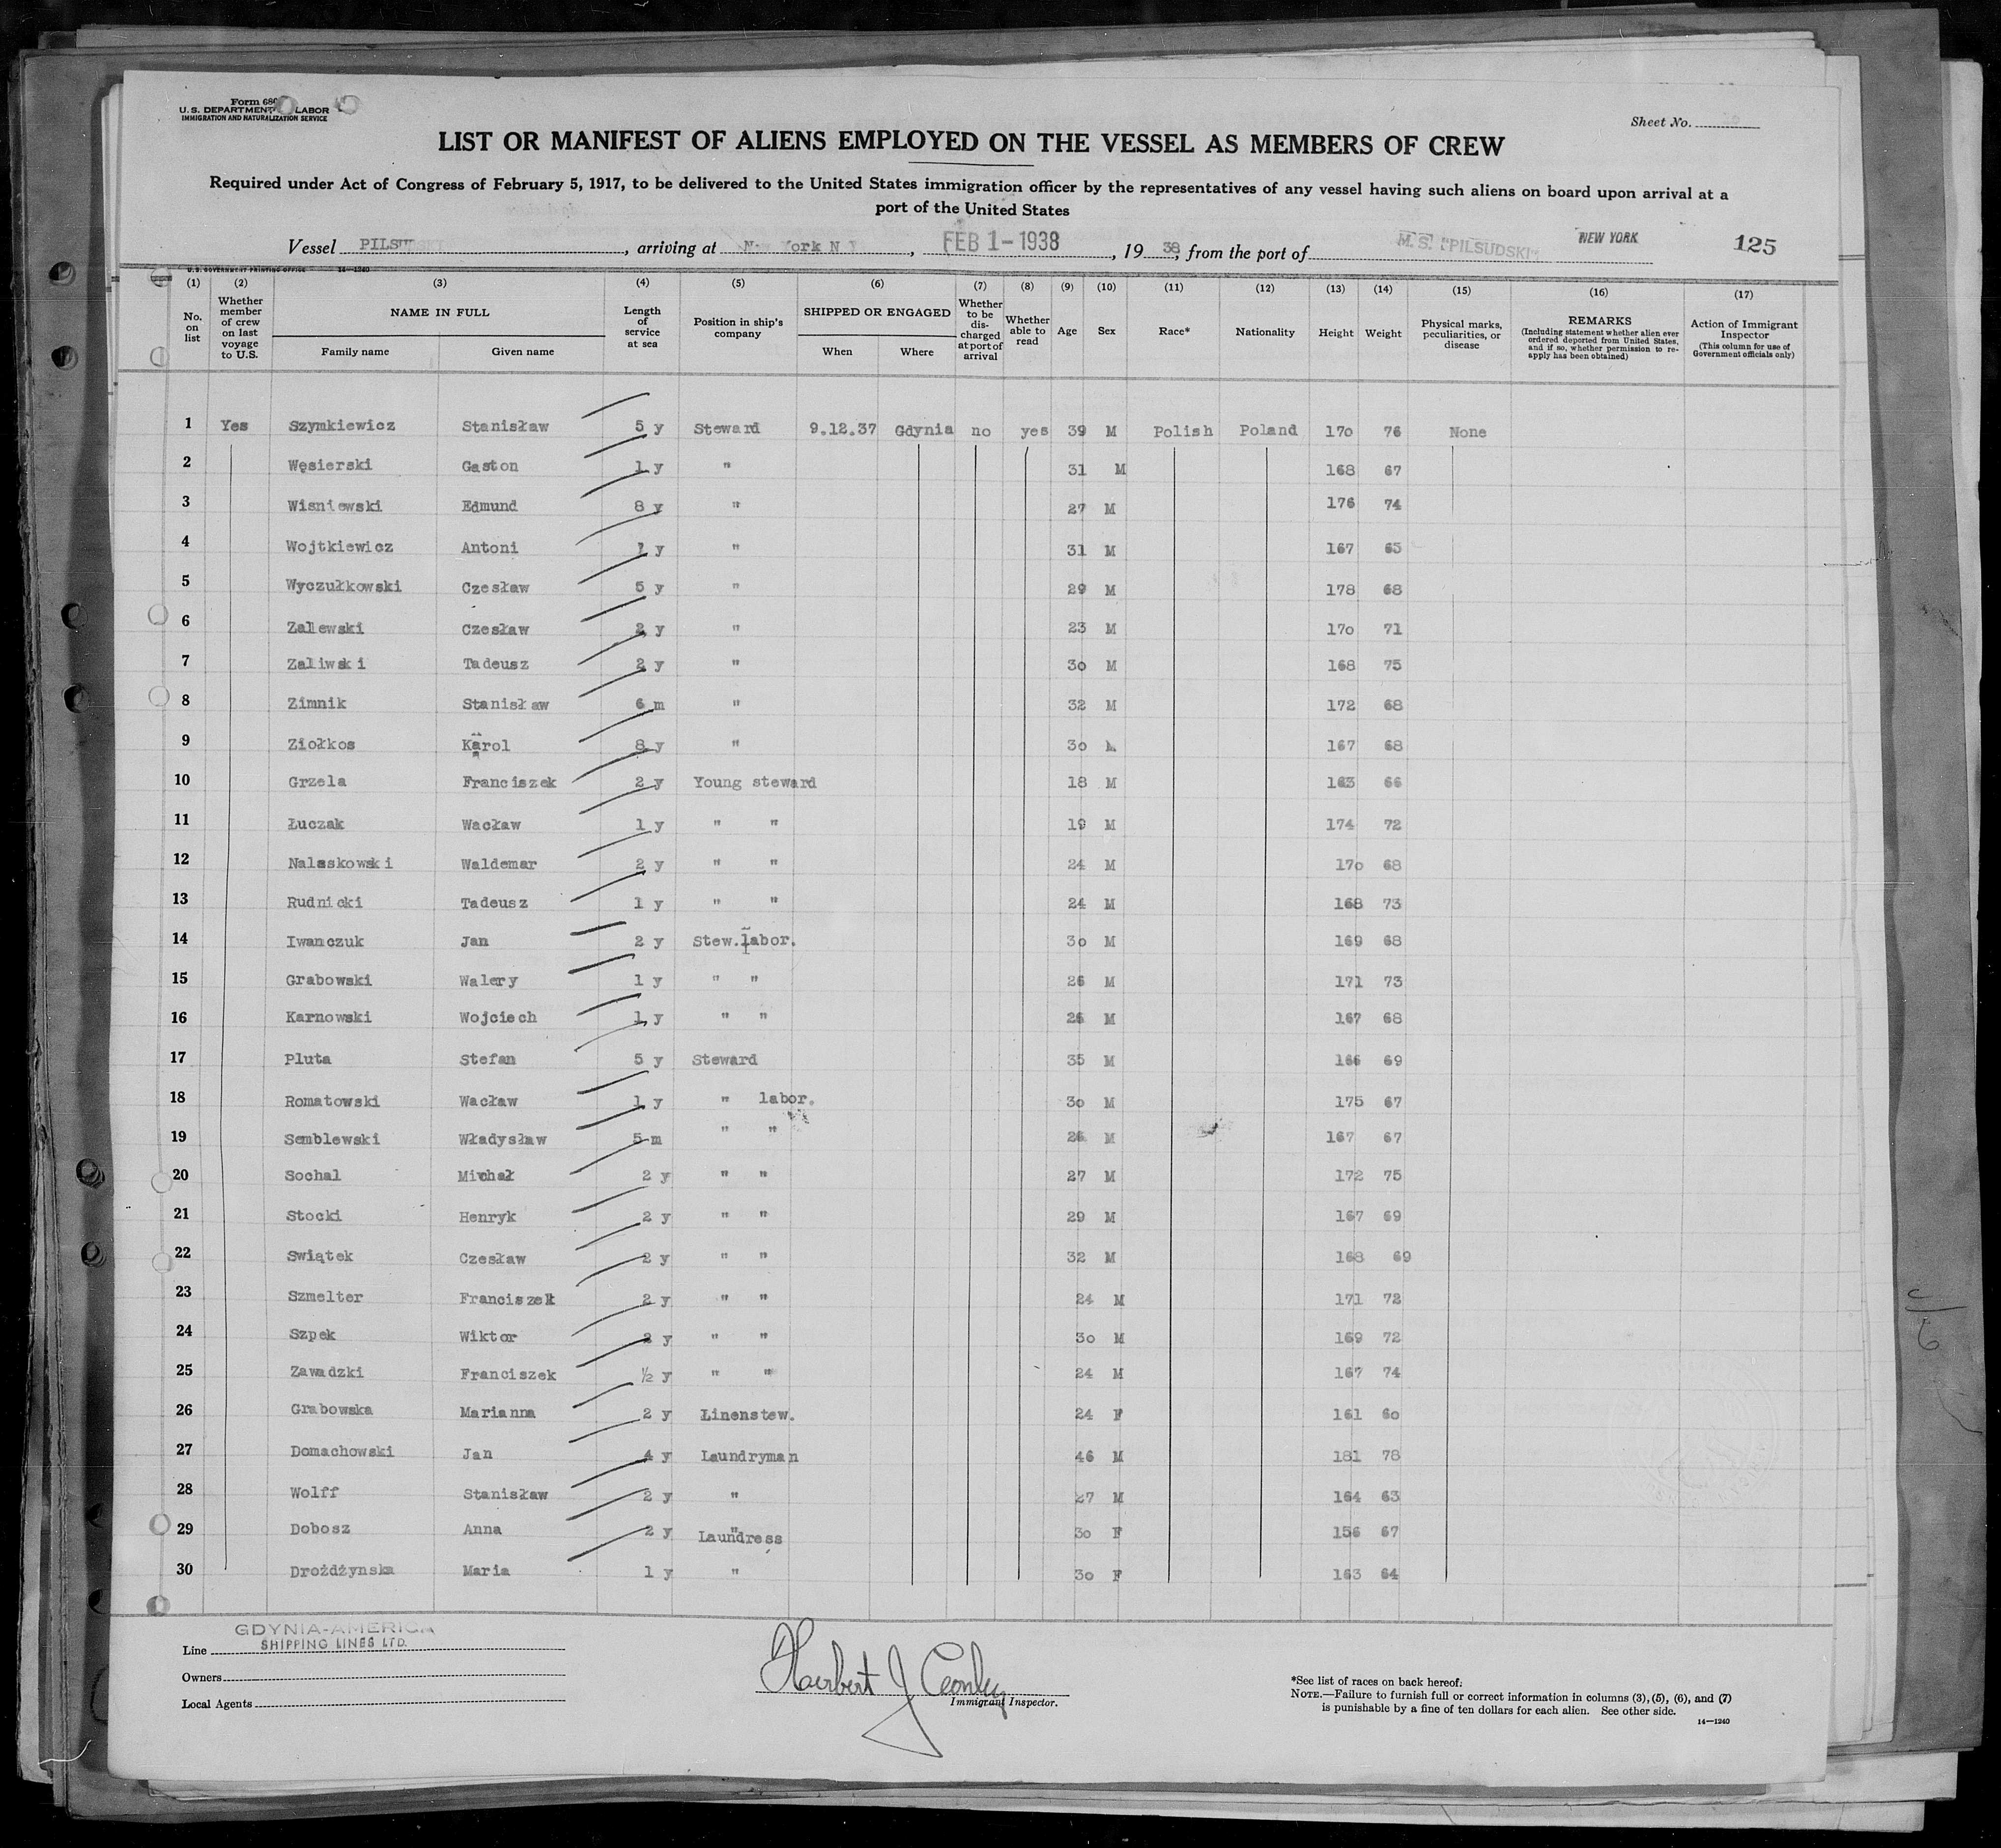 Form 680
U. S. DEPARTMENT LABOR
IMMIGRATION AND NATURALIZATION SERVICE
Sheet No.
LIST OR MANIFEST OF ALIENS EMPLOYED ON THE VESSEL AS MEMBERS OF CREW
Required under Act of Congress of February 5, 1917, to be delivered to the United States immigration officer by the representatives of any vessel having such aliens on board upon arrival at a
port of the United States
Vessel PILSUDSKI, arriving at New York N Y, FEB 1-1938, 19 38, from the port of M. S. "PILSUDSKI" NEW YORK 125
U. S. GOVERNMENT PRINTING OFFICE 14—1240
(1) (2) (3) (4) (5) (6) (7) (8) (9) (10) (11) (12) (13) (14) (15) (16) (17)
No. on list
Whether member of crew on last voyage to U.S.
NAME IN FULL
Family name Given name
Length of service at sea
Position in ship's company
SHIPPED OR ENGAGED
When Where
Whether to be discharged at port of arrival
Whether able to read
Age Sex Race* Nationality Height Weight
Physical marks, peculiarities, or disease
REMARKS
(Including statement whether alien ever ordered deported from United States, and if so, whether permission to re-apply has been obtained)
Action of Immigrant Inspector
(This column for use of Government officials only)
1 Yes Szymkiewicz Stanisław 5 y Steward 9.12.37 Gdynia no yes 39 M Polish Poland 170 76 None
2 Węsierski Gaston 1 y " 31 M 168 67
3 Wisniewski Edmund 8 y " 27 M 176 74
4 Wojtkiewicz Antoni y " 31 M 167 65
5 Wyczułkowski Czesław 5 y " 29 M 178 68
6 Zalewski Czesław 2 y " 23 M 170 71
7 Zaliwski Tadeusz 2 y " 30 M 168 75
8 Zimnik Stanisław 6 m " 32 M 172 68
9 Ziołkos Karol 8 y " 30 M 167 68
10 Grzela Franciszek 2 y Young steward 18 M 163 66
11 Łuczak Wacław 1 y " " 19 M 174 72
12 Nalaskowski Waldemar 2 y " " 24 M 170 68
13 Rudnicki Tadeusz 1 y " " 24 M 168 73
14 Iwanczuk Jan 2 y Stew.labor. 30 M 169 68
15 Grabowski Walery 1 y " " 26 M 171 73
16 Karnowski Wojciech 1 y " " 26 M 167 68
17 Pluta Stefan 5 y Steward 35 M 166 69
18 Romatowski Wacław 1 y " labor. 30 M 175 67
19 Semblewski Władysław 5 m " " 26 M 167 67
20 Sochal Michał 2 y " " 27 M 172 75
21 Stocki Henryk 2 y " " 29 M 167 69
22 Swiątek Czesław 2 y " " 32 M 168 69
23 Szmelter Franciszek 2 y " " 24 M 171 72
24 Szpek Wiktor 2 y " " 30 M 169 72
25 Zawadzki Franciszek ½ y " " 24 M 167 74
26 Grabowska Marianna 2 y Linenstew. 24 F 161 60
27 Domachowski Jan 4 y Laundryman 46 M 181 78
28 Wolff Stanisław 2 y " 27 M 164 63
29 Dobosz Anna 2 y Laundress 30 F 156 67
30 Drożdżynska Maria 1 y " 30 F 163 64
Line GDYNIA-AMERICA
SHIPPING LINES LTD.
Owners
Local Agents
Herbert J Conley
Immigrant Inspector.
*See list of races on back hereof.
NOTE.—Failure to furnish full or correct information in columns (3), (5), (6), and (7)
is punishable by a fine of ten dollars for each alien. See other side.
14—1240